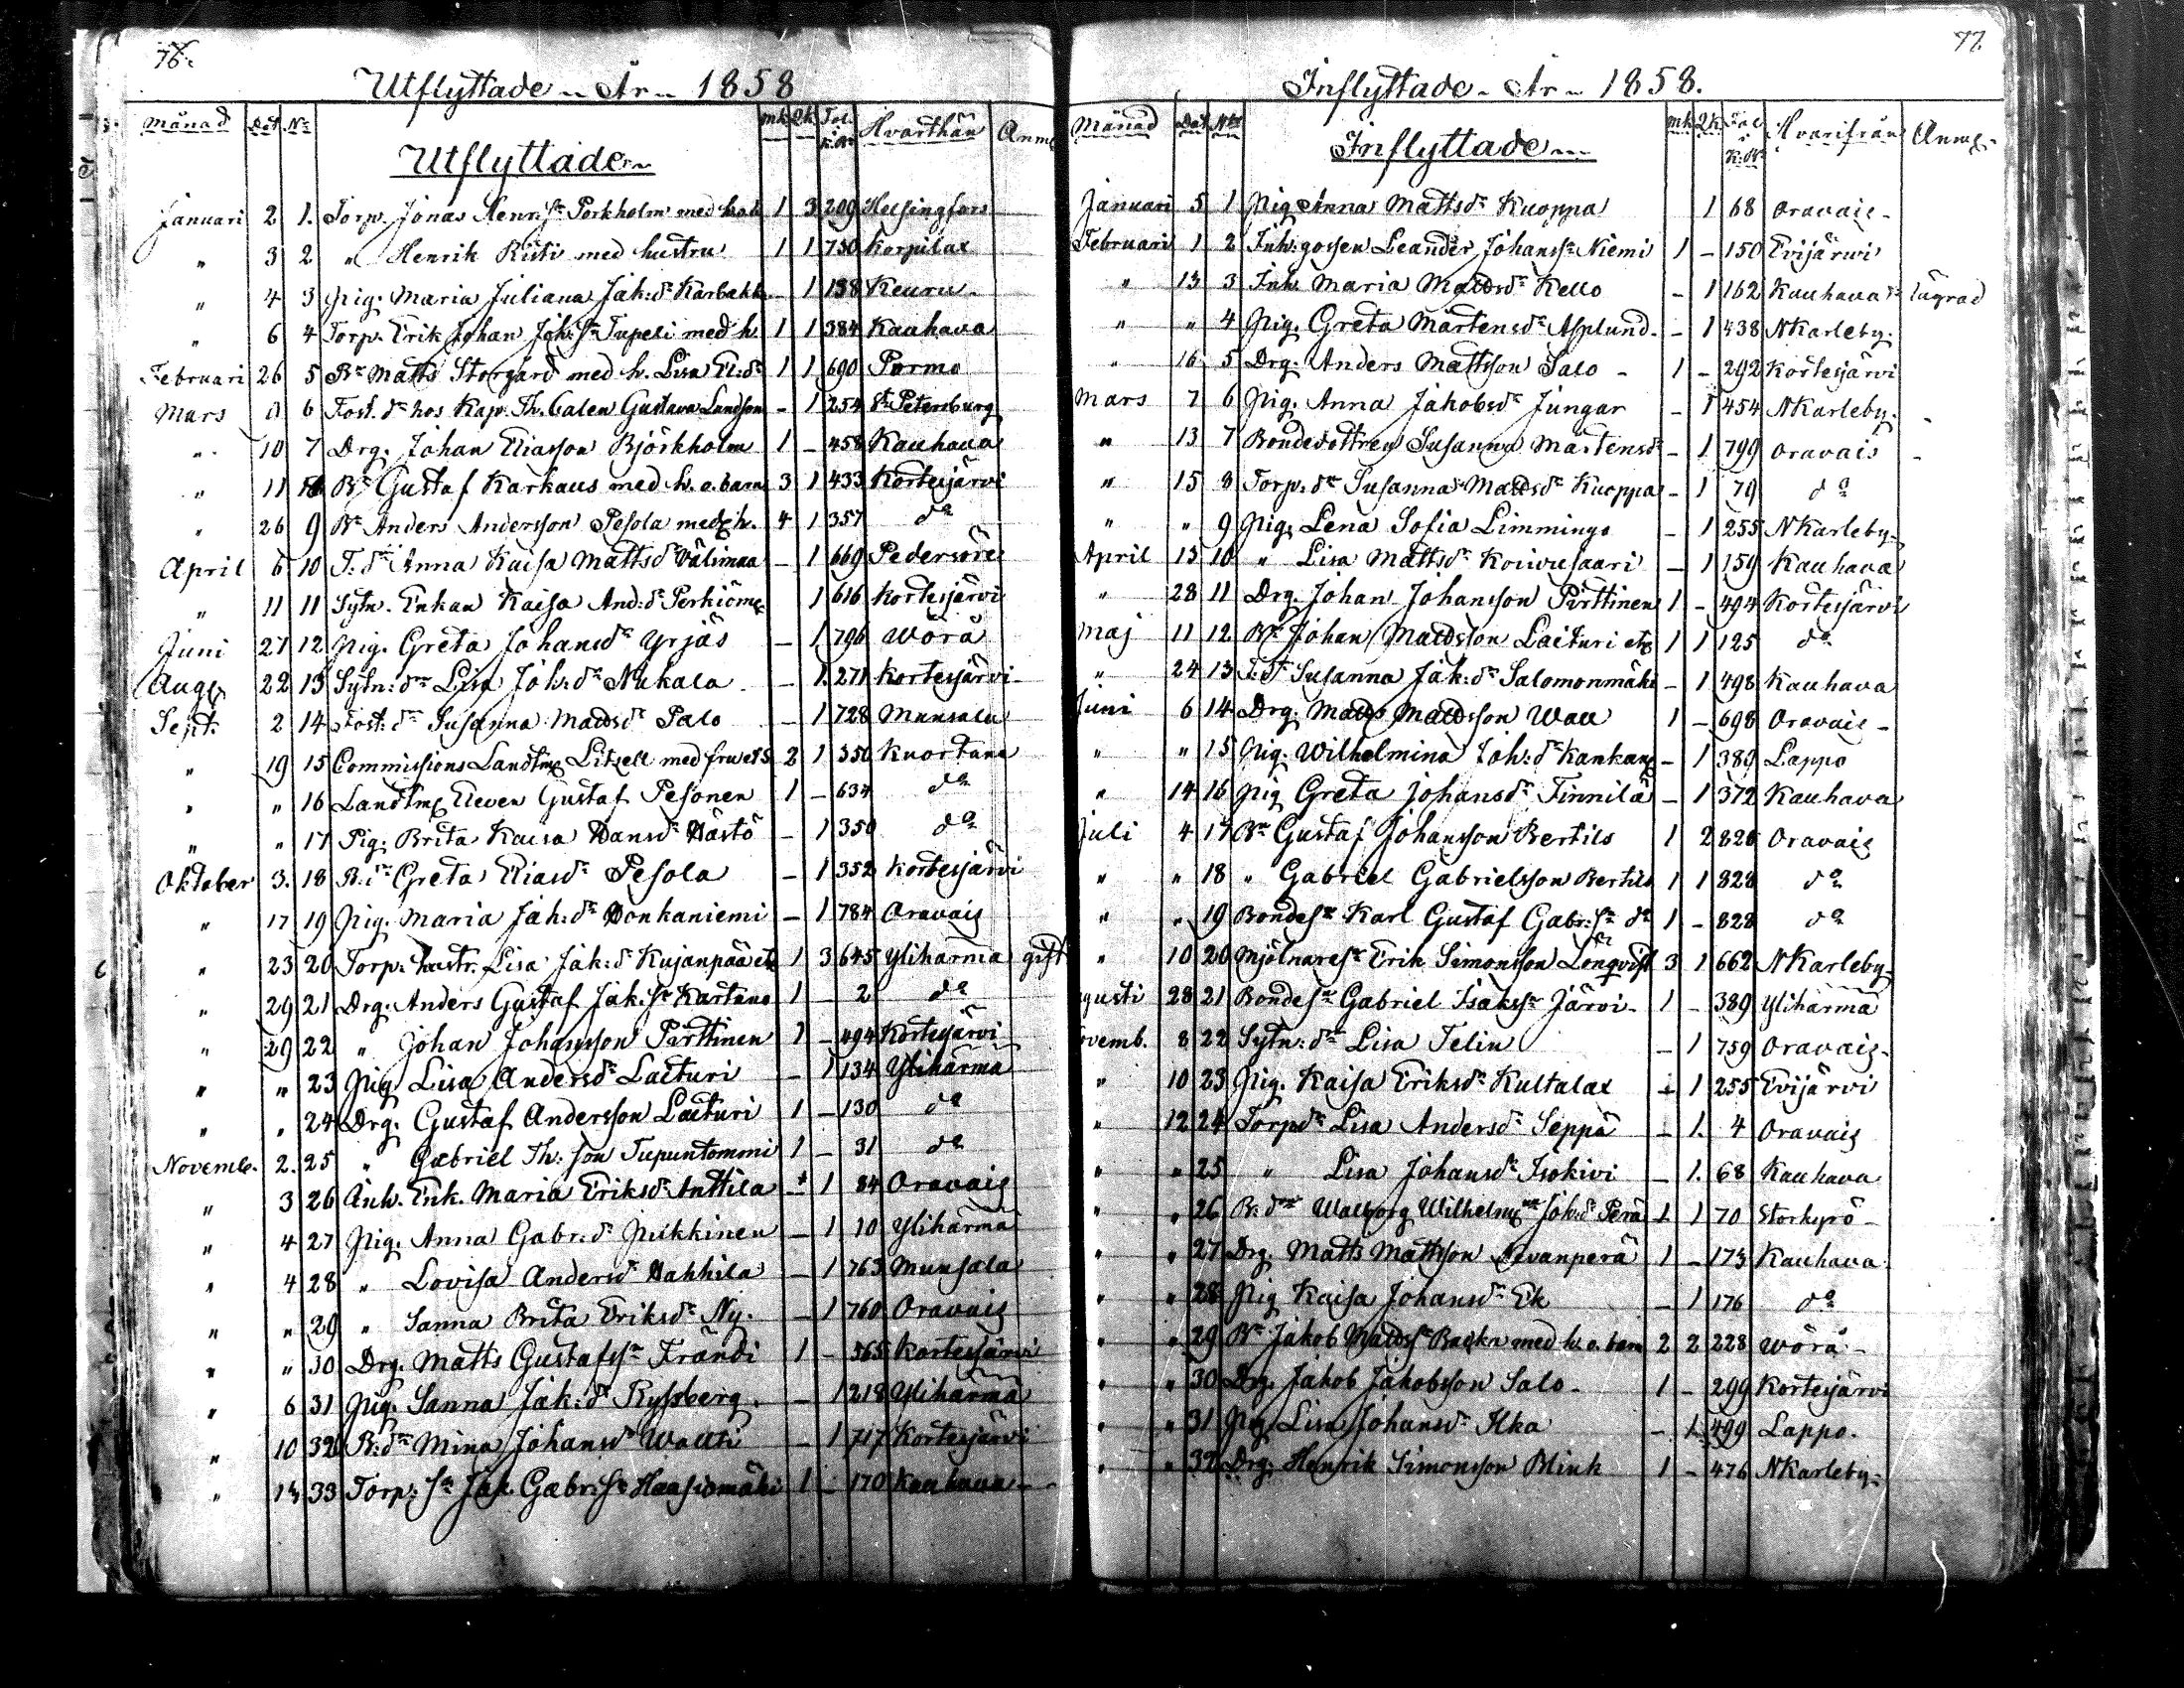 76.
Utflyttade År 1858
Månad Dat. No Utflyttade mk Qk Fol. i K.B. Hvarthän Anm.
Januari 2 1. Torp. Jonas Henr.sn Porkholm med 1 3 209 Helsingfors
" 3 2 " Henrik Risti med hustru 1 1 750 Korpilax
" 4 3 Pig. Maria Juliana Jak:dr - 1 138 Keuru
" 6 4 Torp. Erik Johan Joh:sn Tupeli med h. 1 1 384 Kauhava
Februari 26 5 Bn Matts Storgård med h. Lisa El:dr 1 1 690 Purmo
Mars 6 Fost.dr hos Kap. Th. Calen Gustava Landson - 1 254 St Petersburg
" 10 7 Drg. Johan Eliasson Björkholm 1 - 458 Kauhava
" 11 Bn Gustaf Karhaus med h. o. barn 3 1 433 Kortesjärvi
" 26 9 Bn Anders Andersson Pesola med h. 4 1 357 do
April 6 10 T.dr Anna Kaisa Mattsdr Välimaa - 1 669 Pedersöre
" 11 11 Sytn. Enkan Kaisa And:dr Perkiöm 1 616 Kortesjärvi
Juni 27 12 Pig. Greta Johansdr Yrjäs - 1 796 Wörå
Aug. 22 13 Sytn:dr Lisa Joh:dr Nukala - 1. 271 Kortesjärvi
Sept. 2 14 Fost:dr Susanna Mattsdr Palo - 1 728 Munsala
" 19 15 Commissions Landtm. Litzell med fru et S. 2 1 350 Kuortane
" " 16 Landtm. Eleven Gustaf Pesonen 1 - 634 do
" " 17 Pig. Brita Kaisa Hansdr Hästö - 1 350 do
Oktober 3. 18 B.dr Greta Eliasdr Pesola - 1 352 Kortesjärvi
" 17 19 Pig. Maria Jak:dr Honkaniemi - 1 784 Oravais
" 23 20 Torp. hustr. Lisa Jak:dr Kujanpää etc 1 3 645 Ylihärmä gift
" 29 21 Drg. Anders Gustaf Jak:sn Kartano 1 - 2 do
" 29 22 " Johan Johansson Pärttinen 1 - 494 Kortesjärvi
" " 23 Pig. Lisa Andersdr Laituri - 1 134 Ylihärmä
" " 24 Drg. Gustaf Andersson Laituri 1 - 130 do
Novemb. 2. 25 " Gabriel Th:son Tupuntommi 1 - 31 do
" 3 26 Inh. Enk. Maria Eriksdr Anttila - 1 84 Oravais
" 4 27 Pig. Anna Gabr:dr Pikkinen - 1 10 Ylihärmä
" 4 28 " Lovisa Andersdr Hahhila - 1 763 Munsala
" " 29 " Sanna Brita Eriksdr Ny. - 1 760 Oravais
" " 30 Drg. Matts Gustafssn Frändi 1 - 565 Kortesjärvi
" 6 31 Pig. Sanna Jak:dr Ryssberg. - 1 218 Ylihärmä
" 10 32 B:dr Mina Johansdr Waltti - 1 717 Kortesjärvi
" 14 33 Torp:sn Jak. Gabr:sn Haasiomäki 1 - 170 Kauhava
77.
Inflyttade År 1858.
Månad Dat. No Inflyttade mk Qk Fol. i K.B. Hvarifrån Anm.
Januari 5 1 Pig Anna Mattsdr Kuoppa 1 68 Oravais
Februari 1 2 Inh:gossen Leander Johanssn Niemi 1 - 150 Evijärvi
" 13 3 Inh. Maria Mattsdr Kello - 1 162 Kauhava
" " 4 Pig. Greta Mårtensdr Asplund - 1 438 NKarleby
" 16 5 Drg. Anders Mattsson Salo 1 - 292 Kortesjärvi
Mars 7 6 Pig. Anna Jakobsdr Jungar - 1 454 NKarleby
" 13 7 Bondedottren Susanna Mårtensdr - 1 799 Oravais
" 15 8 Torp.dr Susanna Mattsdr Kuoppa - 1 79 do
" " 9 Pig. Lena Sofia Limmingo - 1 255 NKarleby
April 13 10 " Lisa Mattsdr Koivusaari - 1 159 Kauhava
" 28 11 Drg. Johan Johansson Pärttinen 1 - 494 Kortesjärvi
Maj 11 12 Bn Johan Mattsson Laituri etc 1 1 125 do
" 24 13 T.dr Susanna Jak:dr Salomonmäki - 1 498 Kauhava
Juni 6 14 Drg. Matts Mattsson Wall 1 - 698 Oravais
" " 15 Pig. Wilhelmina Joh:dr Kankans - 1 389 Lappo
" 14 16 Pig Greta Johansdr Finnilä - 1 372 Kauhava
Juli 4 17 Bn Gustaf Johansson Bertils 1 2 828 Oravais
" " 18 " Gabriel Gabrielsson Bertils 1 1 828 do
" " 19 Bondesn Karl Gustaf Gabr:sn do 1 - 828 do
" 10 20 Mjölnaresn Erik Simonsson Lönqvist 3 1 662 NKarleby
gusti 28 21 Bondesn Gabriel Isakssn Järvi 1 - 389 Ylihärmä
ovemb. 8 22 Sytn:dr Lisa Telin - 1 759 Oravais
" 10 23 Pig. Kaisa Eriksdr Kultalax - 1 255 Evijärvi
" 12 24 Torpdr Lisa Andersdr Seppä - 1. 4 Oravais
" " 25 " Lisa Johansdr Isokivi - 1. 68 Kauhava
" " 26 B:dr Walborg Wilhelm. Joh:dr Perä 1 1 70 Storkyrö
" " 27 Drg. Matts Mattsson Levanperä 1 - 173 Kauhava
" " 28 Pig Kaisa Johansdr Ek - 1 176 do
" " 29 Bn Jakob Mattssn Backa med h. o. barn 2 2 228 Wörå
" " 30 Drg. Jakob Jakobsson Salo 1 - 299 Kortesjärvi
" " 31 Pig. Lisa Johansdr Ilka - 1 499 Lappo.
" " 32 Drg. Henrik Simonsson Blink 1 - 476 NKarleby